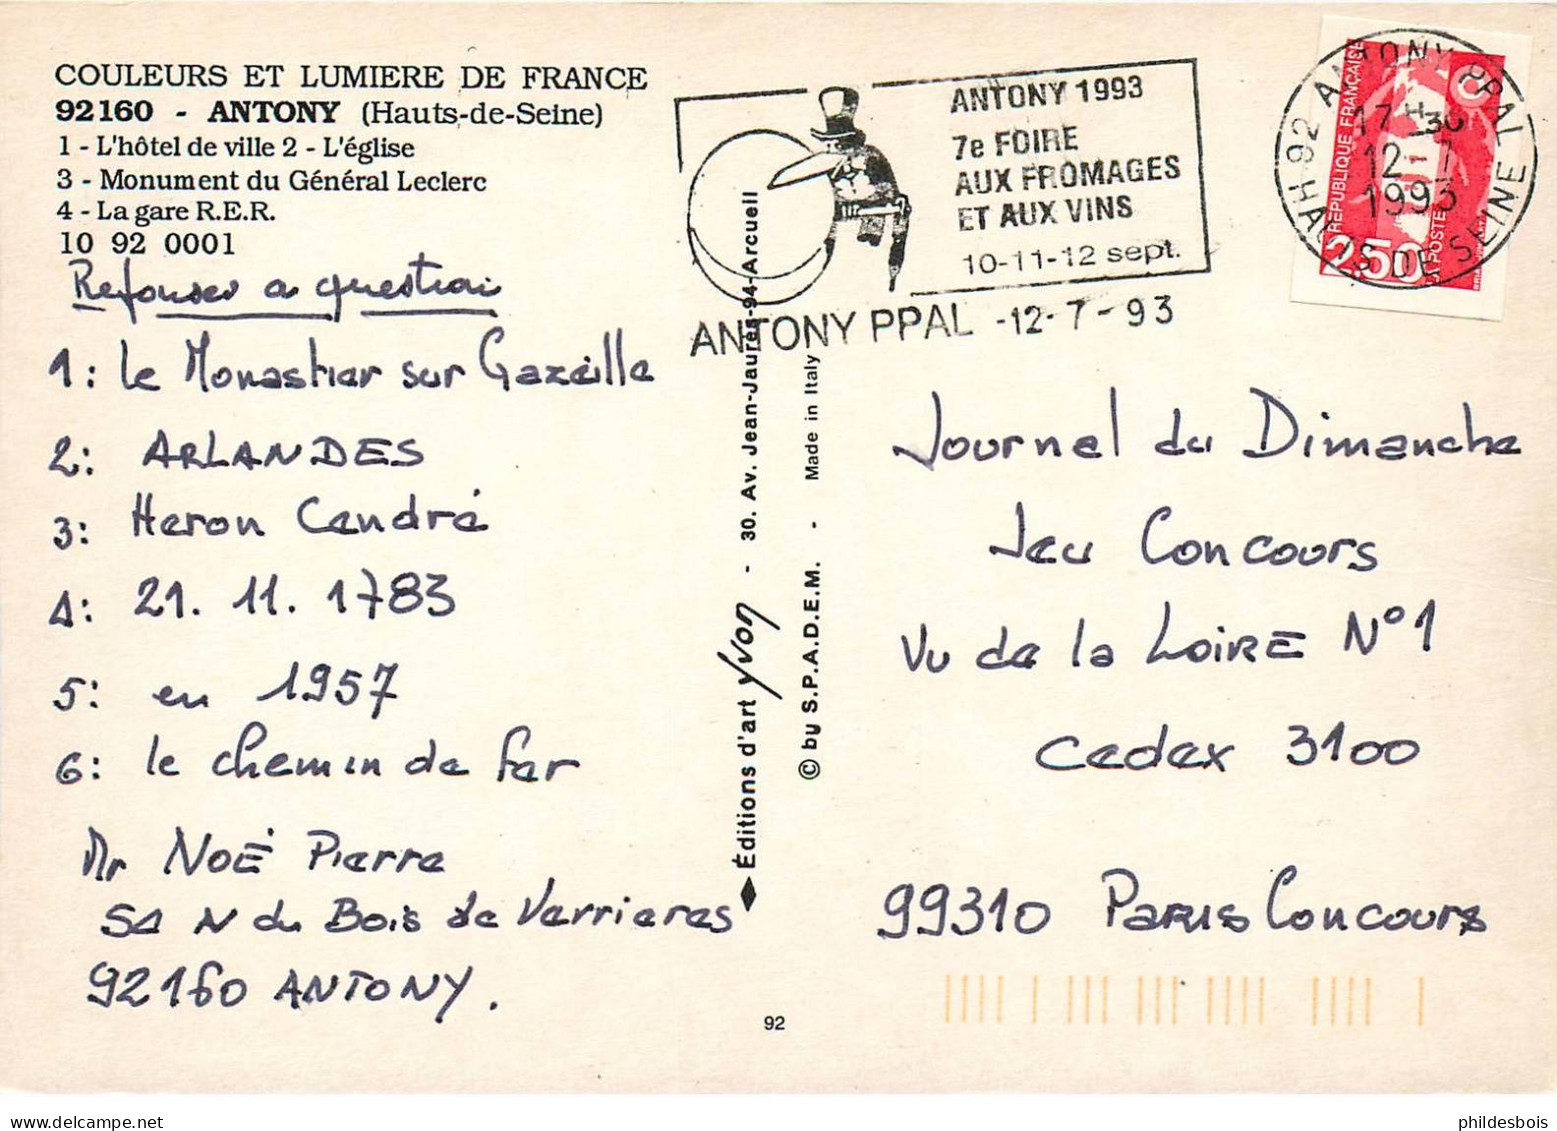 COULEURS ET LUMIERE DE FRANCE
92160 - ANTONY (Hauts-de-Seine)
1 - L'hôtel de ville 2 - L'église
3 - Monument du Général Leclerc
4 - La gare R.E.R.
10 92 0001
Reponses a question
1: Le Monastier sur Gazeille
2: ARLANDES
3: Heron Cendré
4: 21. 11. 1783
5: en 1957
6: le chemin de fer
Mr NOÉ Pierre
51 N du Bois de Verrieres
92160 ANTONY.
ANTONY 1993
7e FOIRE
AUX FROMAGES
ET AUX VINS
10-11-12 sept.
ANTONY PPAL -12-7-93
92 ANTONY PPAL
17H30
12-7
1993
HAUTS DE SEINE
RÉPUBLIQUE FRANÇAISE
2,50
LA POSTE
◆ Éditions d'art Yvon - 30. Av. Jean-Jaurès-94-Arcueil
© by S.P.A.D.E.M. - Made in Italy
Journal du Dimanche
Jeu Concours
Vu de la LOIRE N°1
Cedex 3100
99310 PARIS Concours
92
phildesbois